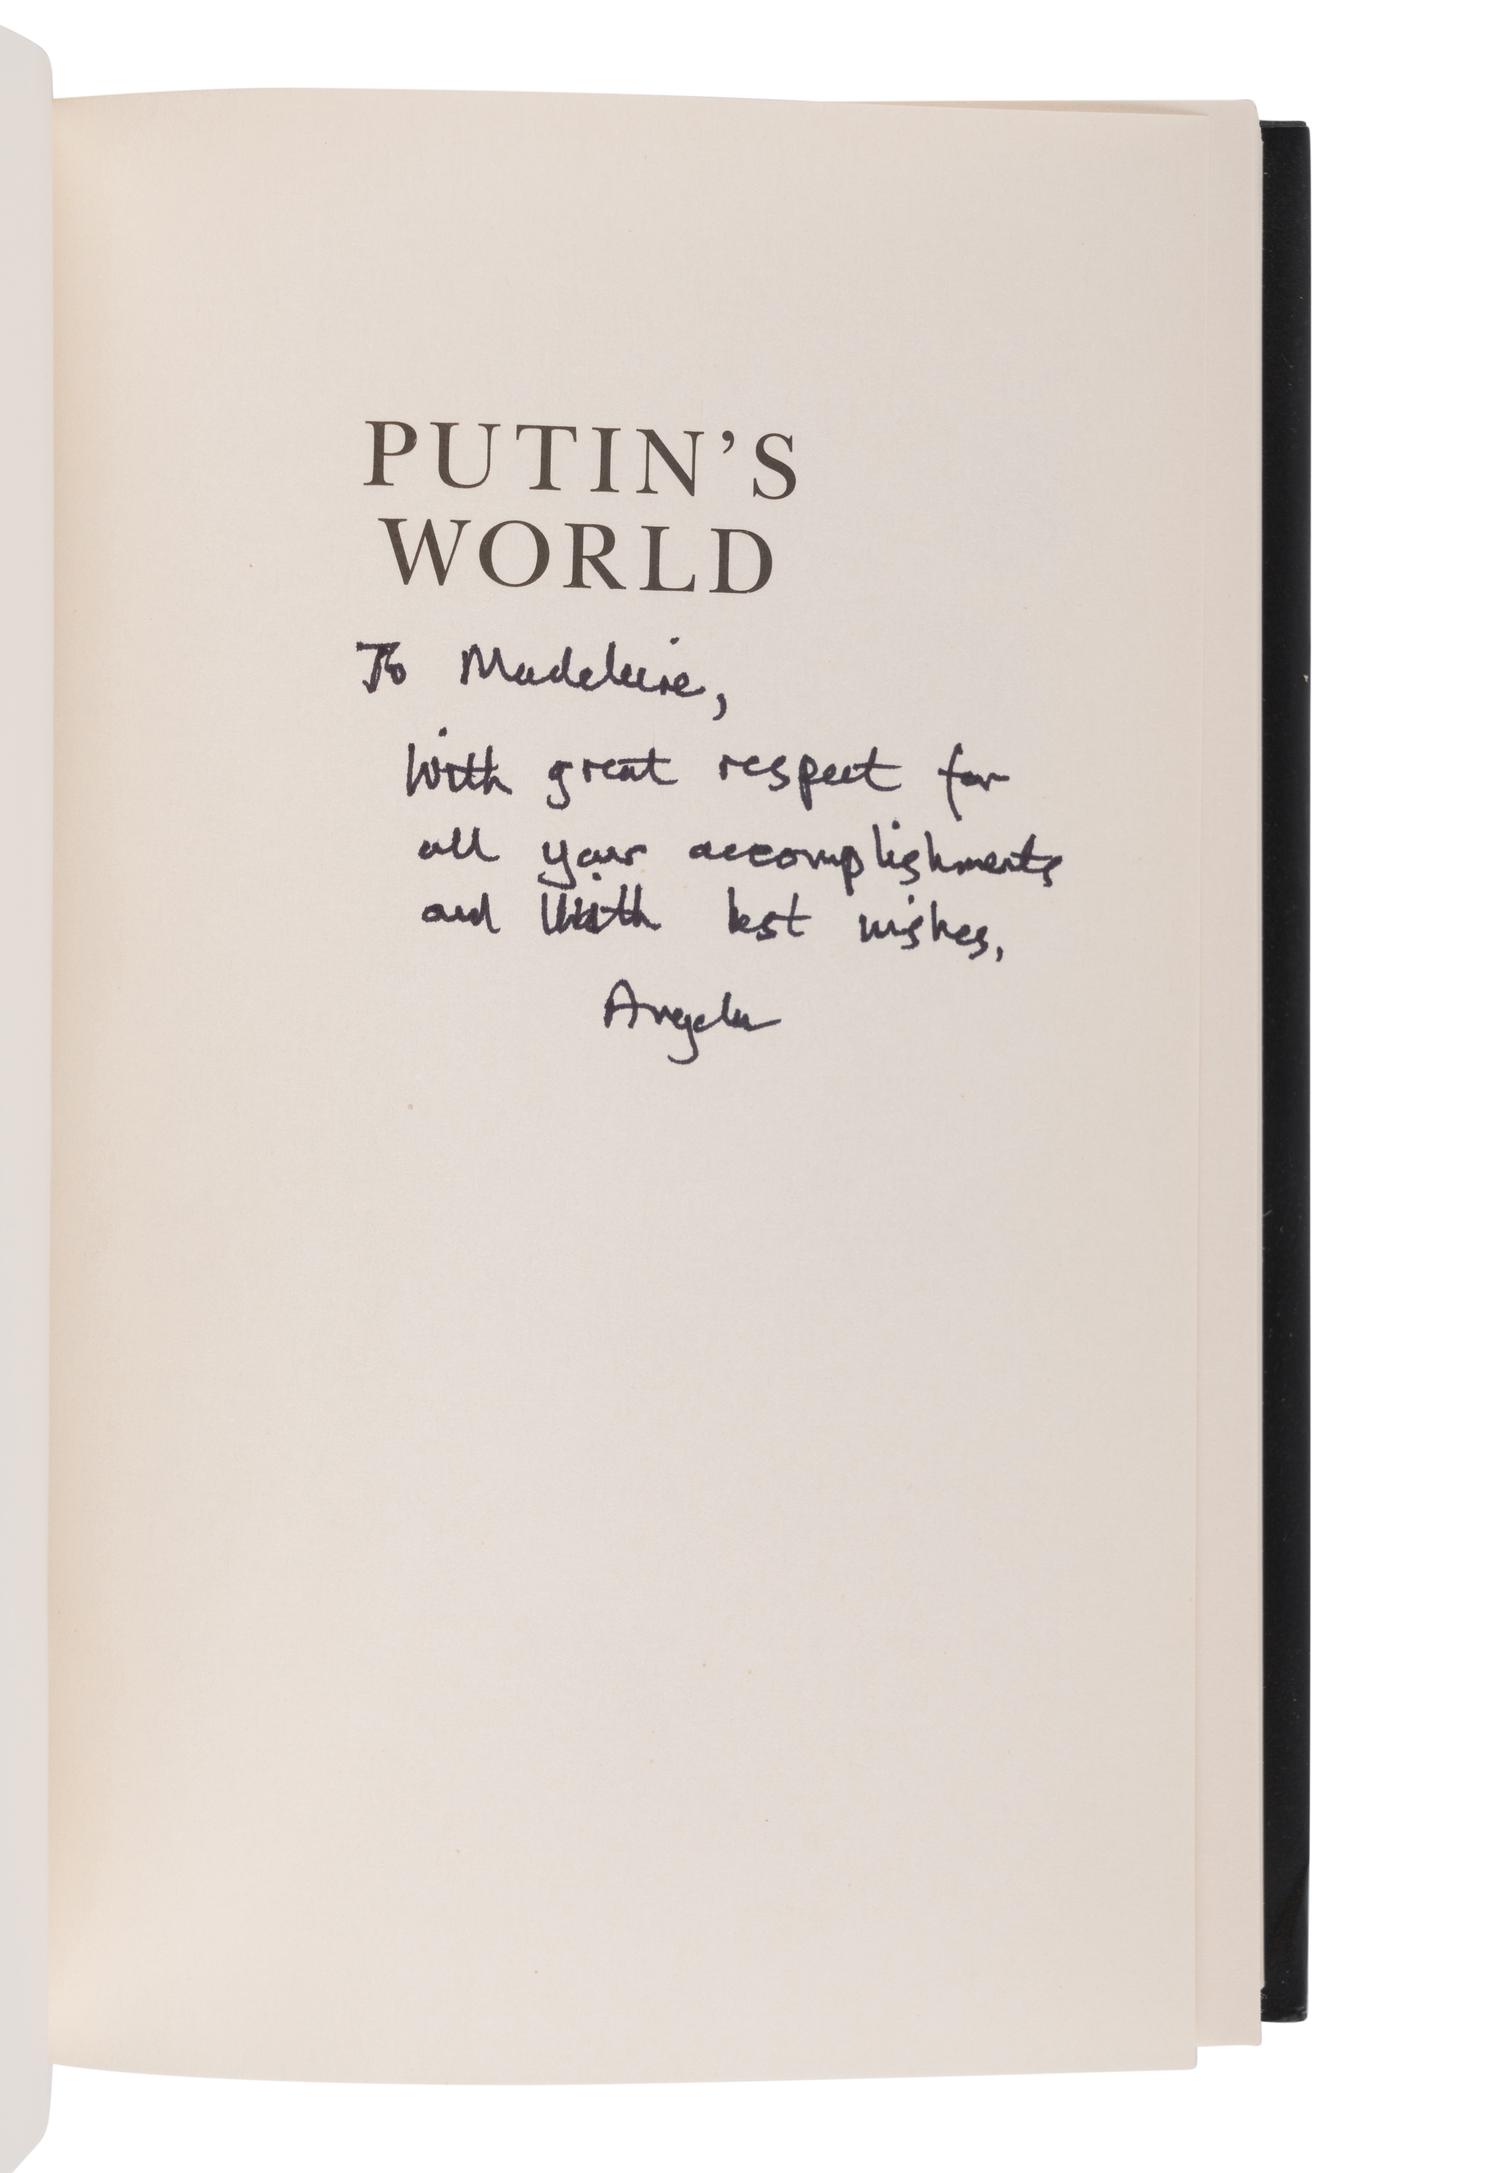 PUTIN'S
WORLD
To Madeleine,
With great respect for
all your accomplishments
and with best wishes,
Angela